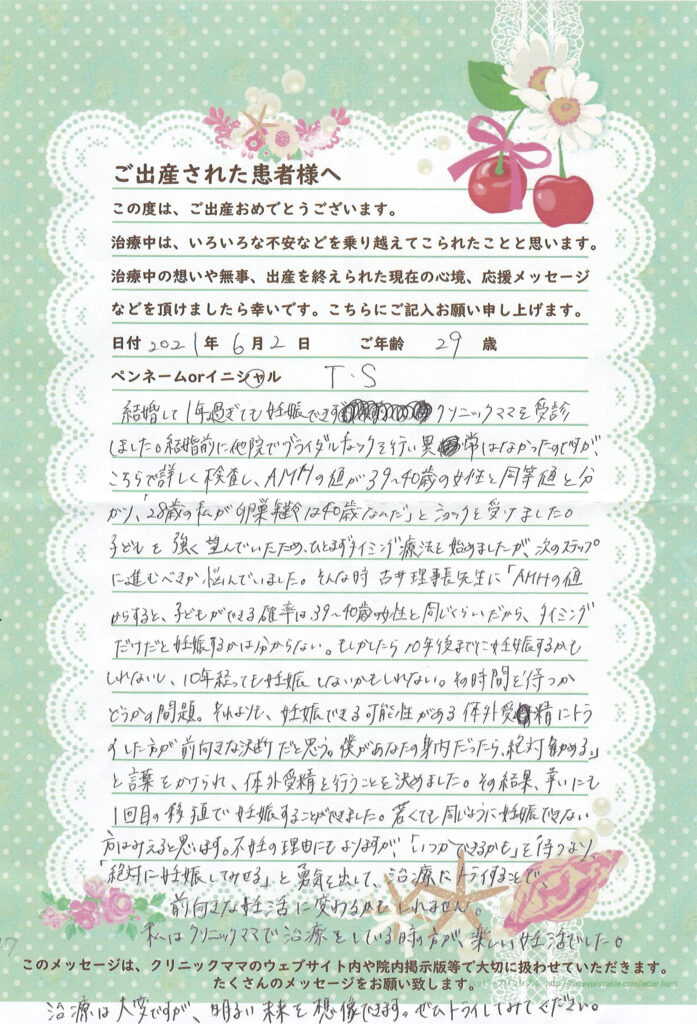 ご出産された患者様へ
この度は、ご出産おめでとうございます。
治療中は、いろいろな不安などを乗り越えてこられたことと思います。
治療中の想いや無事、出産を終えられた現在の心境、応援メッセージ
などを頂けましたら幸いです。こちらにご記入お願い申し上げます。
日付 2021年 6月 2日 ご年齢 29歳
ペンネームorイニシャル T・S
結婚して1年過ぎても妊娠できず クリニックママを受診
しました。結婚前に他院でブライダルチェックを行い異常はなかったのですが、
こちらで詳しく検査し、AMHの値が39〜40歳の女性と同等値と分
かり、「28歳の私が卵巣年齢は40歳なんだ」とショックを受けました。
子どもを強く望んでいたため、ひとまずタイミング療法を始めましたが、次のステップ
に進むべきか悩んでいました。そんな時古井理事長先生に「AMHの値
からすると、子どもができる確率は39〜40歳の女性と同じくらいだから、タイミング
だけだと妊娠するかは分からない。もしかしたら10年後までに妊娠するかも
しれないし、10年経っても妊娠しないかもしれない。その時間を待つか
どうかの問題。それよりも、妊娠できる可能性がある体外受精にトラ
イした方が前向きな決断だと思う。僕があなたの身内だったら、絶対勧める。」
と言葉をかけられ、体外受精を行うことを決めました。その結果、幸いにも
1回目の移植で妊娠することができました。若くても同じように妊娠できない
方はみえると思います。不妊の理由にもよりますが、「いつかできるかも」を待つより、
「絶対に妊娠してみせる」と勇気を出して、治療にトライすることで、
前向きな妊活に変わるかもしれません。
私はクリニックママで治療をしている時の方が、楽しい妊活でした。
このメッセージは、クリニックママのウェブサイト内や院内掲示版等で大切に扱わせていただきます。
たくさんのメッセージをお願い致します。
http://happyprintable.com/letter.html
治療は大変ですが、明るい未来を想像できます。ぜひトライしてみてください。